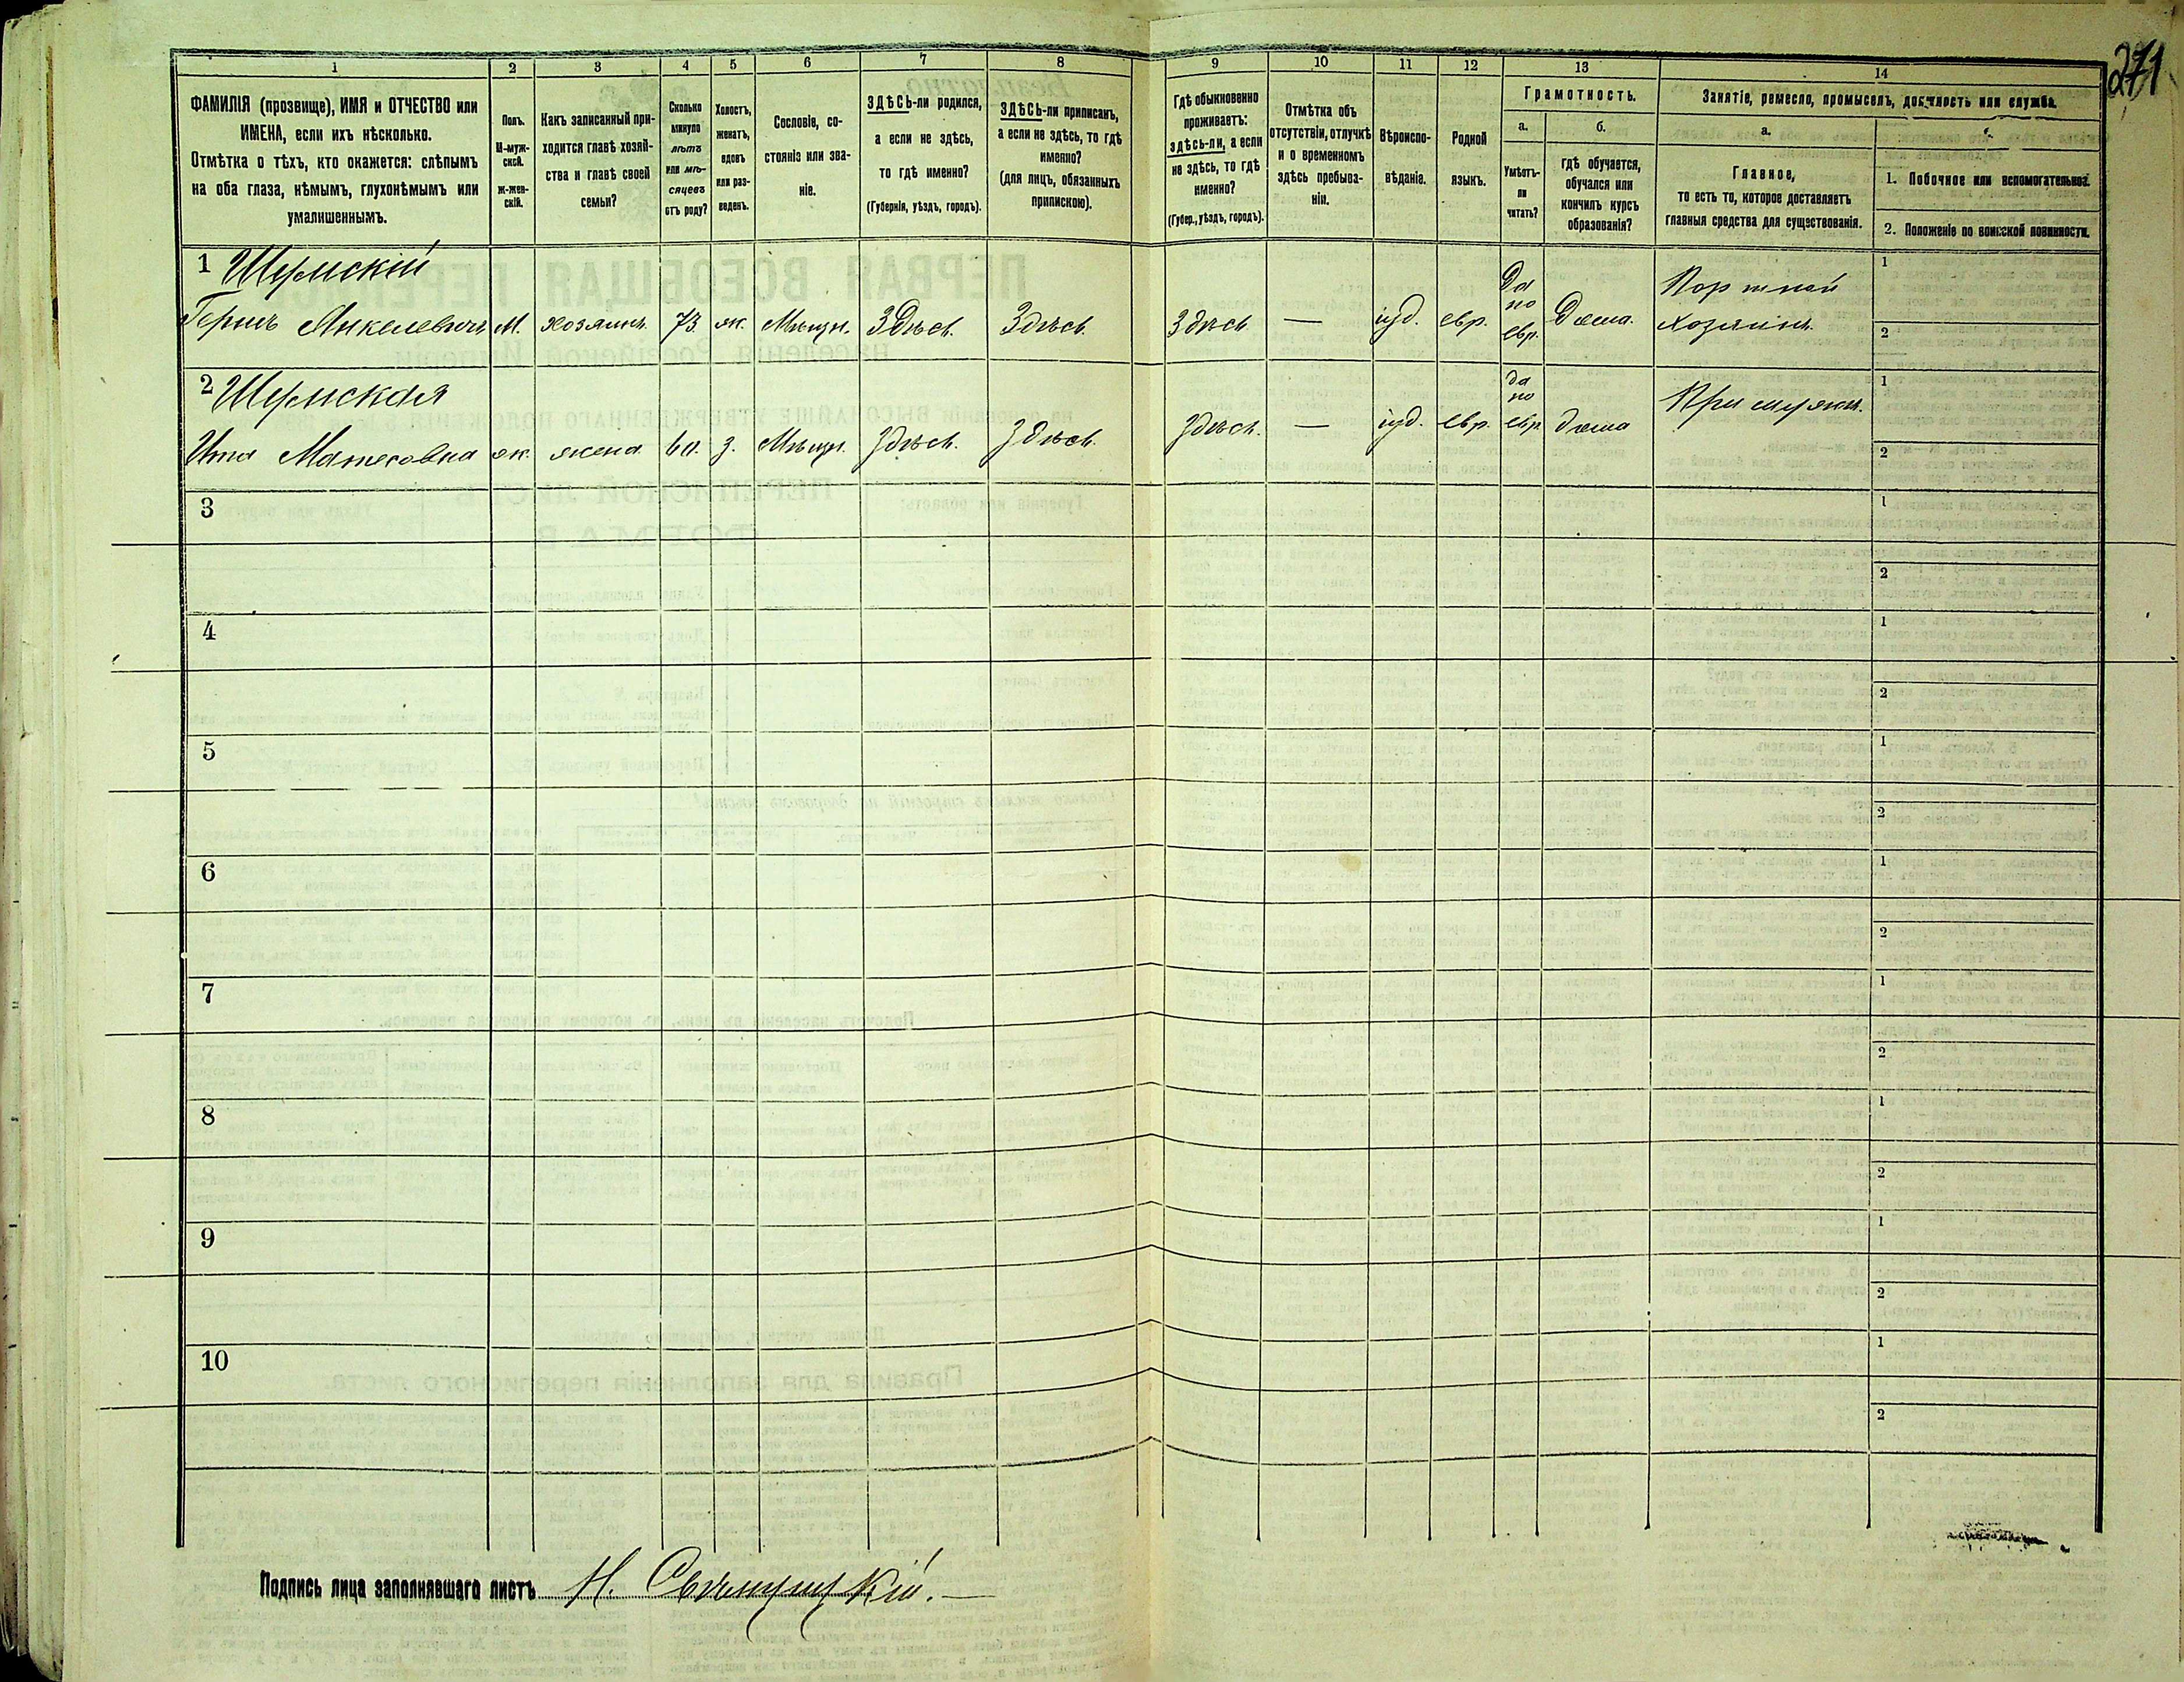 271
1 2 3 4 5 6 7 8 9 10 11 12 13 14
ФАМИЛІЯ (прозвище), ИМЯ и ОТЧЕСТВО или
ИМЕНА, если ихъ нѣсколько.
Отмѣтка о тѣхъ, кто окажется: слѣпымъ
на оба глаза, нѣмымъ, глухонѣмымъ или
умалишеннымъ.
Полъ.
М-муж-
ской.
ж-жен-
скій.
Какъ записанный при-
ходится главѣ хозяй-
ства и главѣ своей
семьи?
Сколько
минуло
лѣтъ
или мѣ-
сяцевъ
отъ роду?
Холостъ,
женатъ,
вдовъ
или раз-
веденъ.
Сословіе, со-
стояніе или зва-
ніе.
ЗДѢСЬ-ли родился,
а если не здѣсь,
то гдѣ именно?
(Губернія, уѣздъ, городъ).
ЗДѢСЬ-ли приписанъ,
а если не здѣсь, то гдѣ
именно?
(для лицъ, обязанныхъ
припискою).
Гдѣ обыкновенно
проживаетъ:
здѣсь-ли, а если
не здѣсь, то гдѣ
именно?
(Губер., уѣздъ, городъ).
Отмѣтка объ
отсутствіи, отлучкѣ
и о временномъ
здѣсь пребыва-
ніи.
Вѣроиспо-
вѣданіе.
Родной
языкъ.
Грамотность.
а.
Умѣетъ-
ли
читать?
б.
гдѣ обучается,
обучался или
кончилъ курсъ
образованія?
Занятіе, ремесло, промыселъ, должность или служба.
а.
Главное,
то есть то, которое доставляетъ
главныя средства для существованія.
1. Побочное или вспомогательное.
2. Положеніе по воинской повинности.
1 Шумскій
Гершъ Анкелевичъ М. хозяинъ 73 ж. Мѣщан. Здѣсь. Здѣсь. Здѣсь — іуд. евр. Да по евр. Дома. Портной хозяинъ. 1 2
2 Шумская
Ита Матесовна ж. жена 60. з. Мѣщан. Здѣсь. Здѣсь. Здѣсь. — іуд. евр. да по евр. дома При мужѣ. 1 2
3 1 2
4 1 2
5 1 2
6 1 2
7 1 2
8 1 2
9 1 2
10 1 2
Подпись лица заполнявшаго листъ Н.